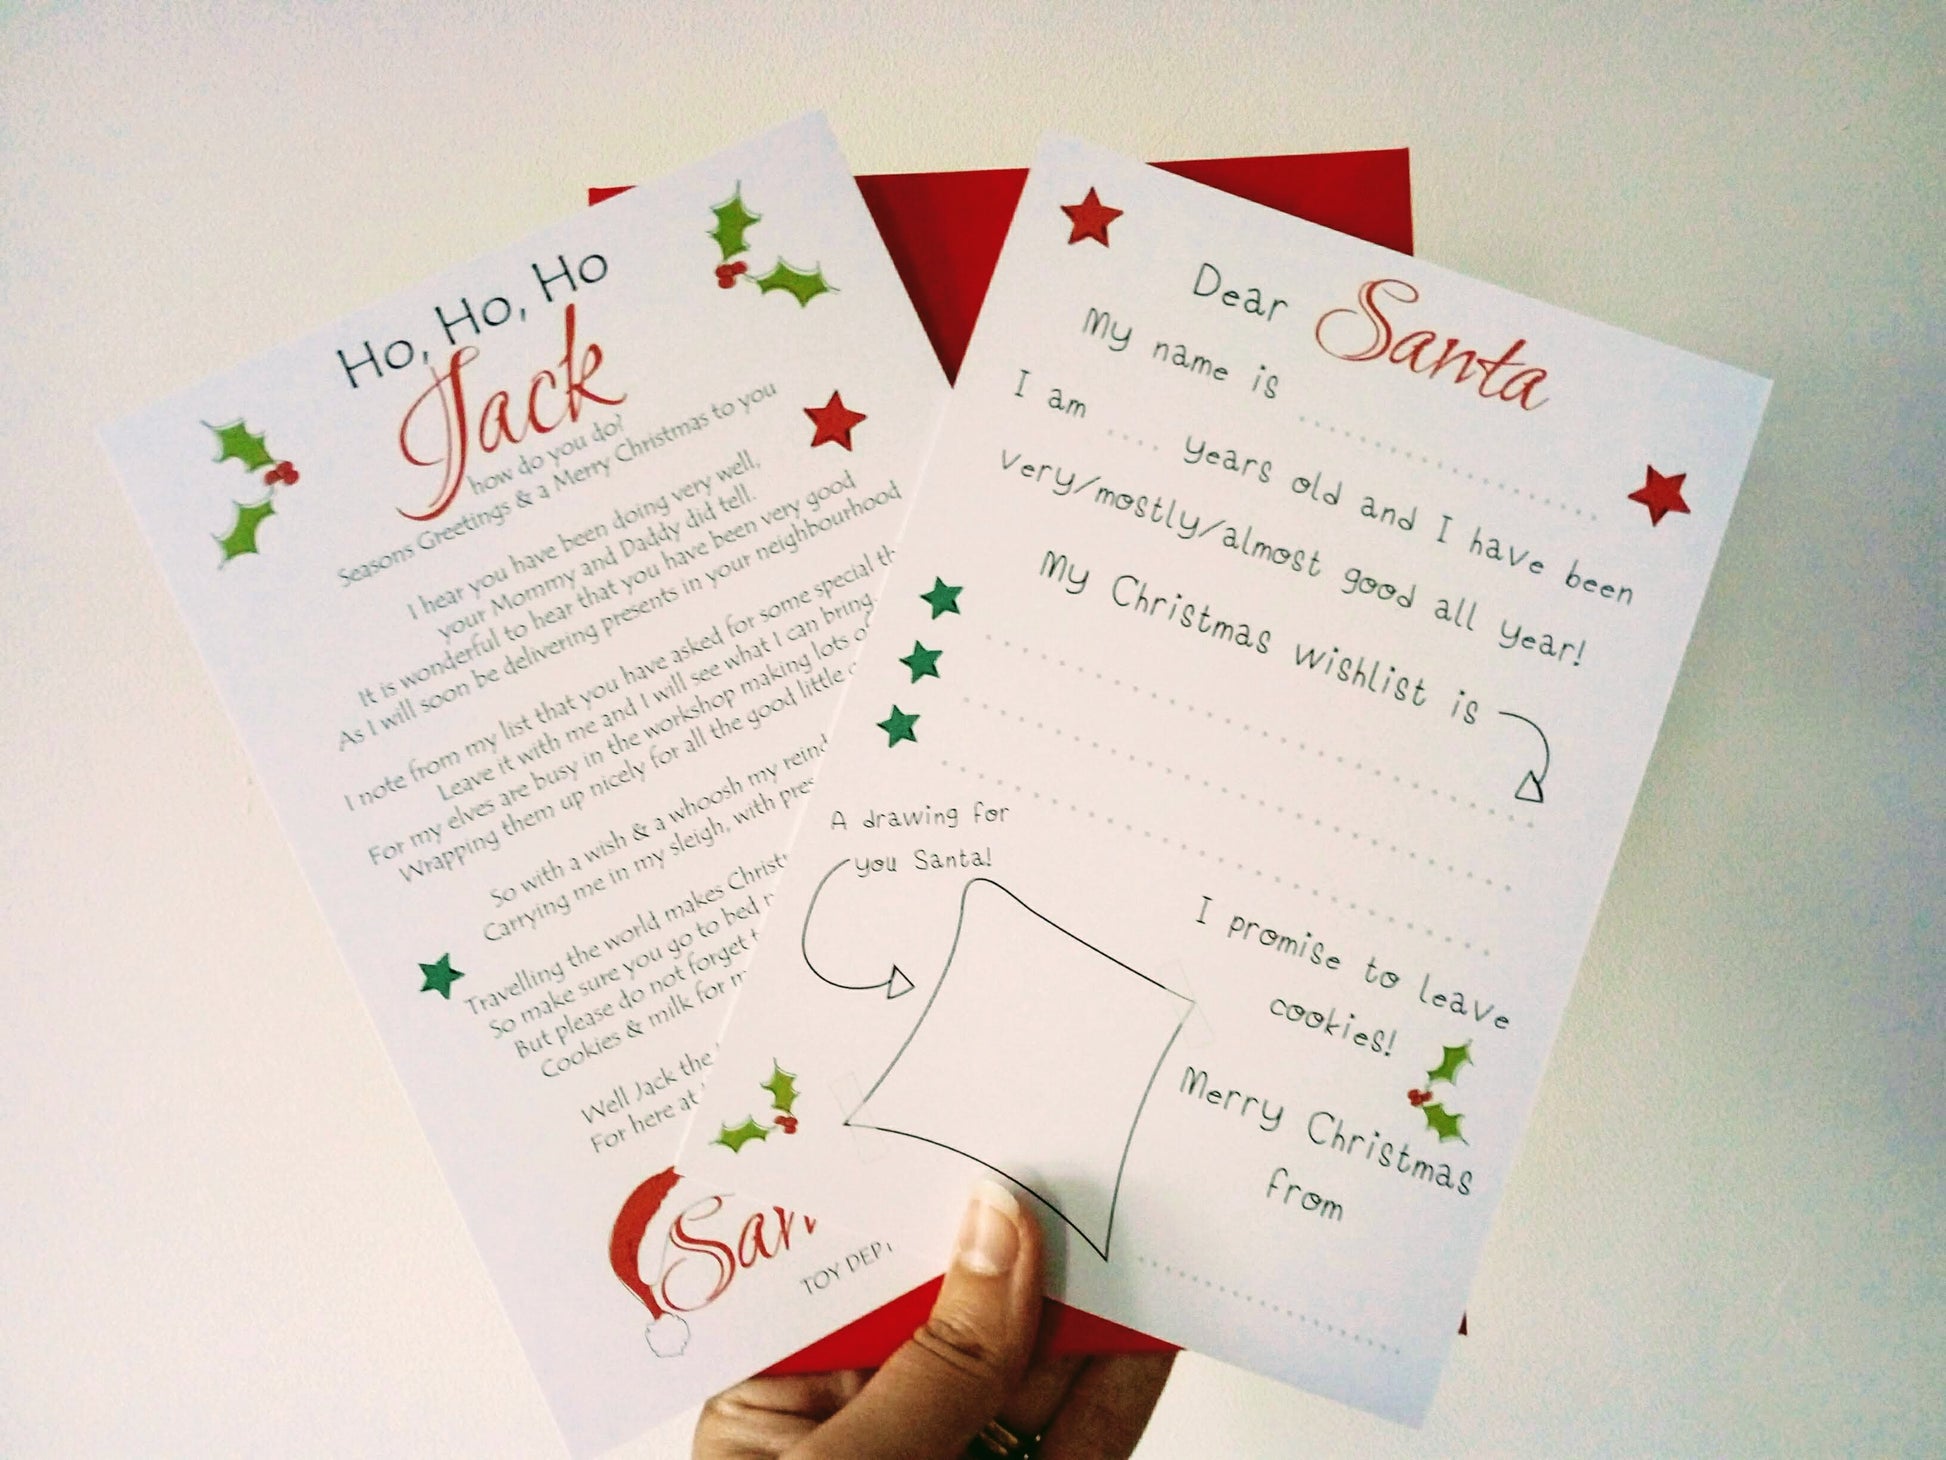 Ho, Ho, Ho
Jack
how do you do?
Seasons Greetings & a Merry Christmas to you
I hear you have been doing very well,
your Mommy and Daddy did tell.
It is wonderful to hear that you have been very good
As I will soon be delivering presents in your neighbourhood
I note from my list that you have asked for some special
Leave it with me and I will see what I can bring.
For my elves are busy in the workshop making lots
Wrapping them up nicely for all the good little
So with a wish & a whoosh my
Carrying me in my sleigh, with
Travelling the world makes
So make sure you go to bed
But please do not forget
Cookies & milk for
Well Jack the
For here at
TOY
Dear Santa
My name is
I am .... years old and I have been
very/mostly/almost good all year!
My Christmas wishlist is
A drawing for
you Santa!
I promise to leave
cookies!
Merry Christmas
from